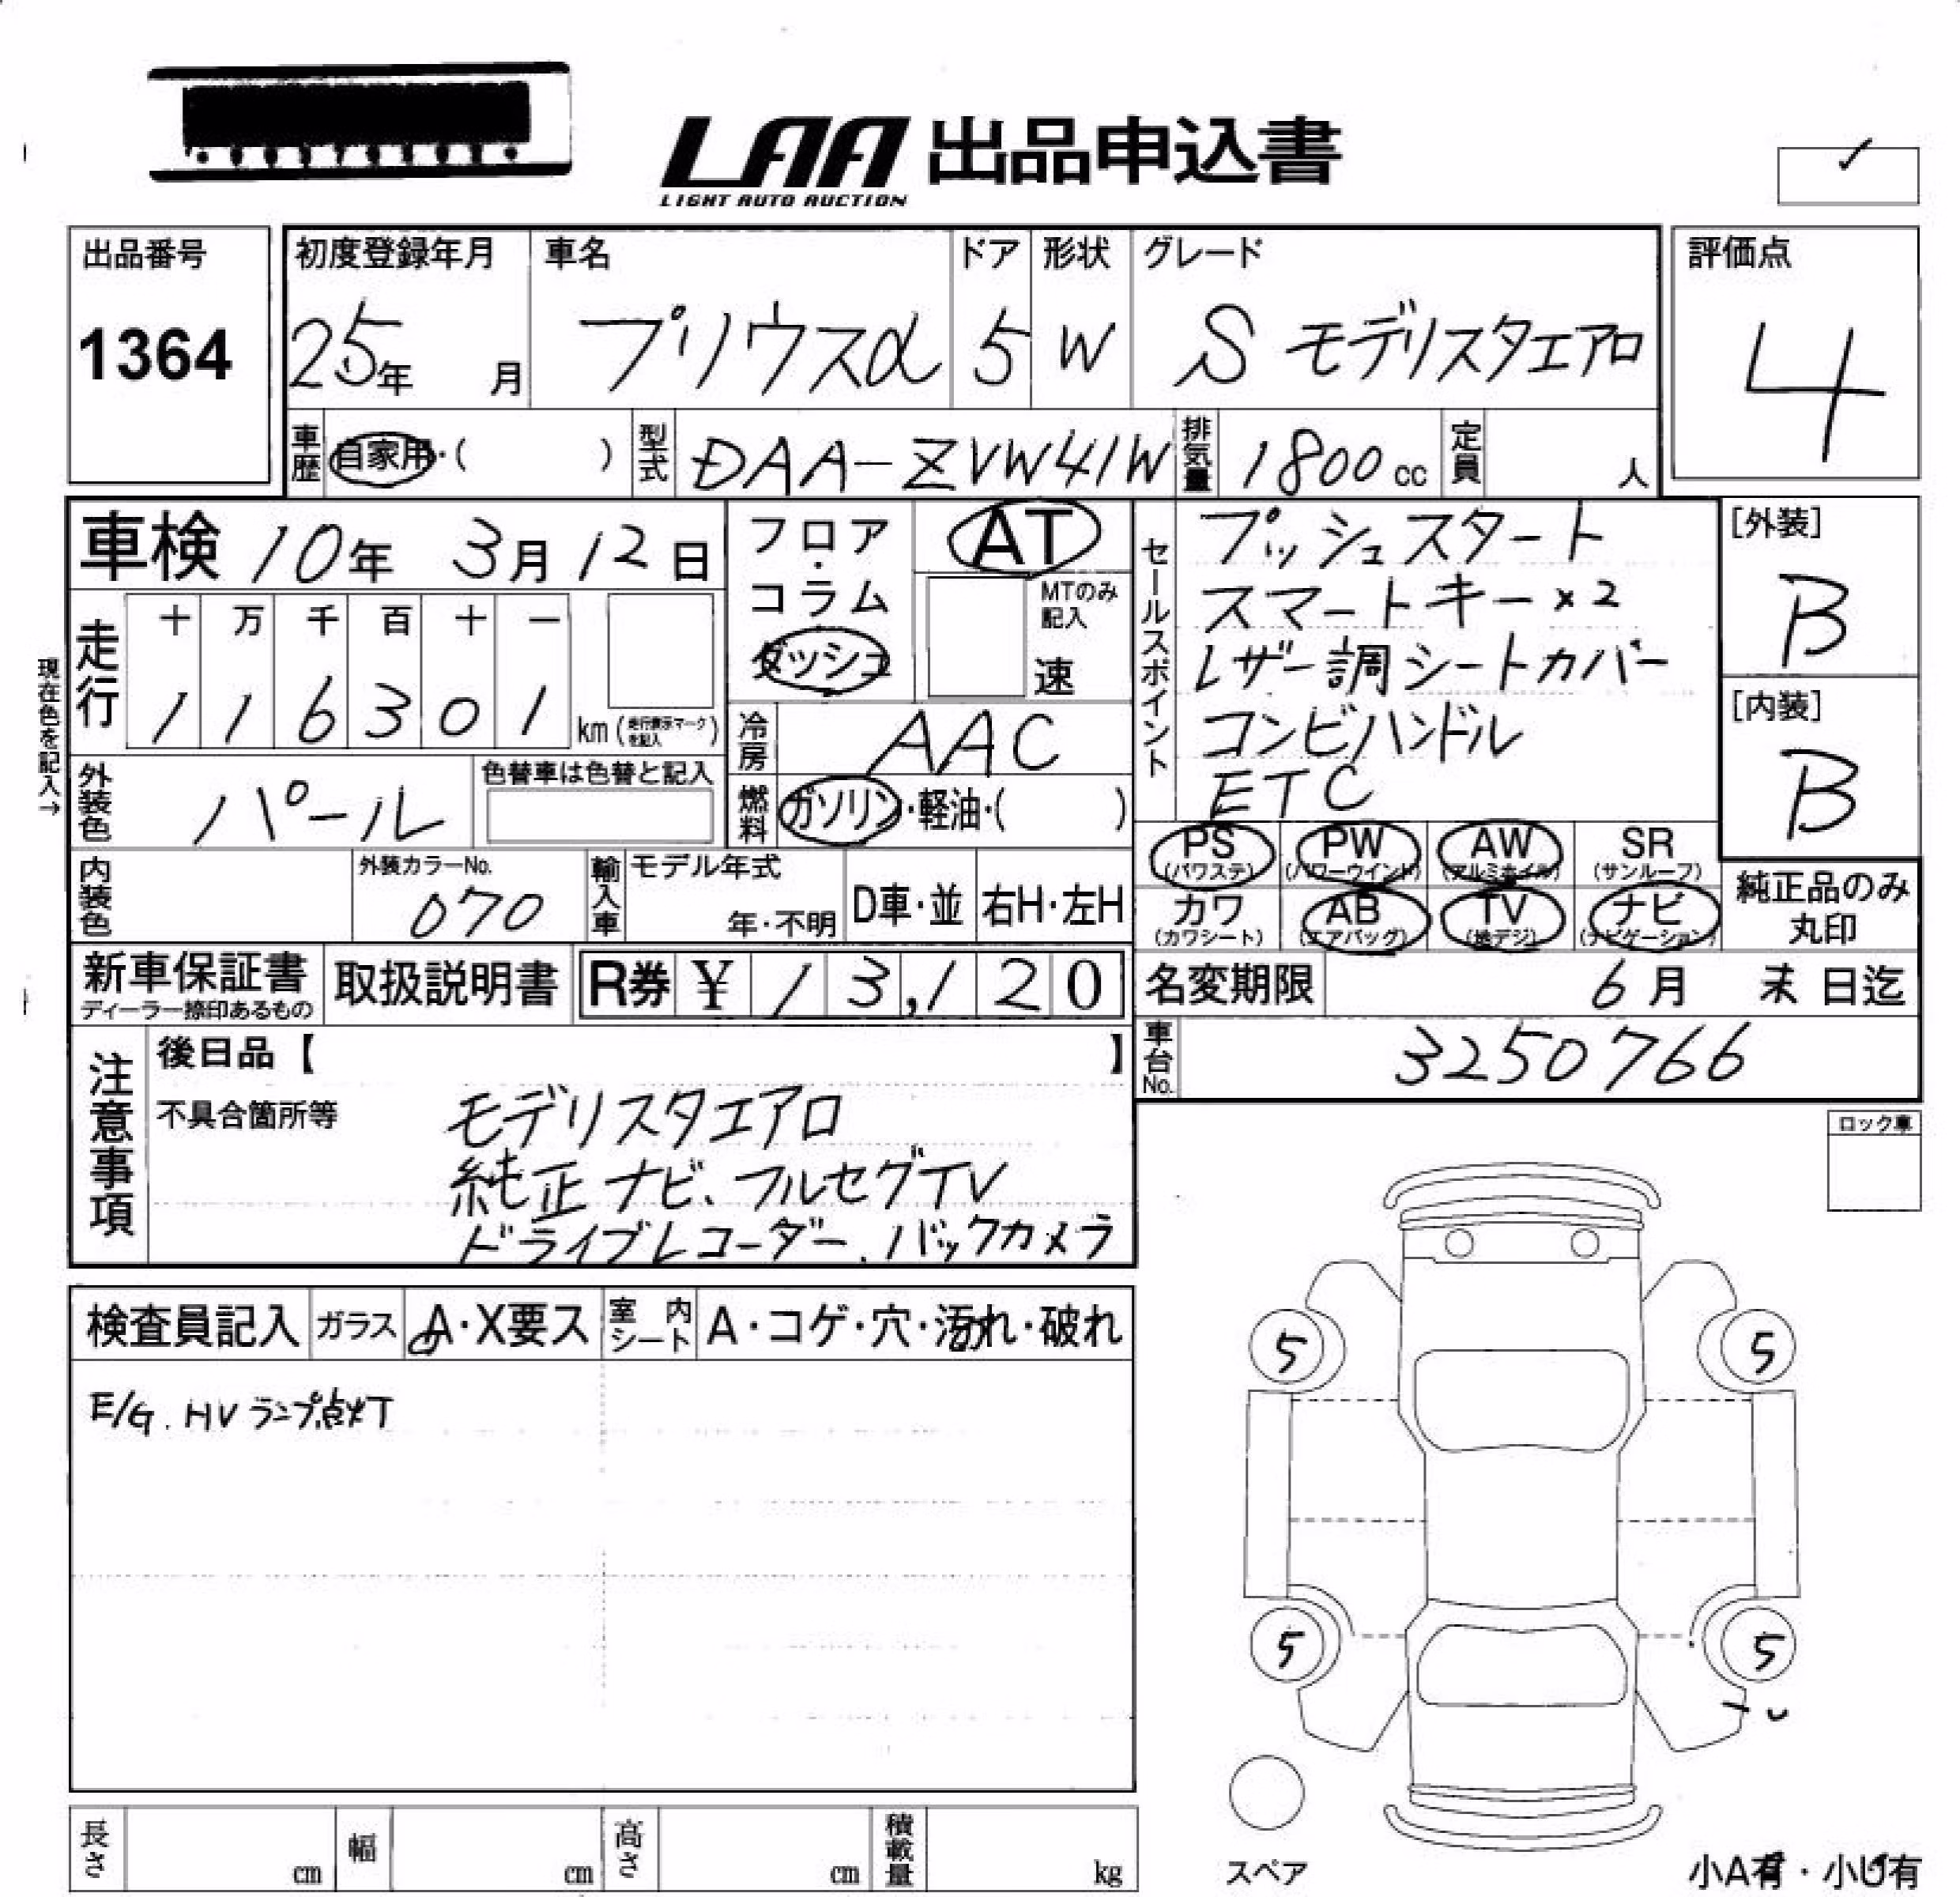 LAA 出品申込書
LIGHT AUTO AUCTION
✓
出品番号
1364
初度登録年月
25年 月
車名
プリウスα
ドア
5
形状
W
グレード
S モデリスタエアロ
評価点
4
車歴 自家用・( )
型式 DAA-ZVW41W
排気量 1800 cc
定員 人
車検 10年 3月 12日
現在色を記入→
走行
十 万 千 百 十 一
1 1 6 3 0 1 km (走行表示マークを記入)
フロア・コラム
ダッシュ
AT
MTのみ記入
速
冷房 AAC
燃料 ガソリン・軽油・( )
外装色 パール
色替車は色替と記入
内装色
外装カラーNo.
070
輸入車 モデル年式
年・不明
D車・並
右H・左H
セールスポイント
プッシュスタート
スマートキー×2
レザー調シートカバー
コンビハンドル
ETC
[外装]
B
[内装]
B
PS (パワステ)
PW (パワーウインド)
AW (アルミホイル)
SR (サンルーフ)
カワ (カワシート)
AB (エアバッグ)
TV (地デジ)
ナビ (ナビゲーション)
純正品のみ
丸印
新車保証書
ディーラー捺印あるもの
取扱説明書
R券 ¥ 1 3,1 2 0
名変期限 6月 末 日迄
車台No. 3250766
注意事項
後日品【 】
不具合箇所等
モデリスタエアロ
純正ナビ、フルセグTV
ドライブレコーダー、バックカメラ
ロック車
検査員記入 ガラス A・X要ス 室内シート A・コゲ・穴・汚れ・破れ
E/G. HVランプ点灯
5 5
5 5
スペア
小A有・小U有
長さ cm 幅 cm 高さ cm 積載量 kg